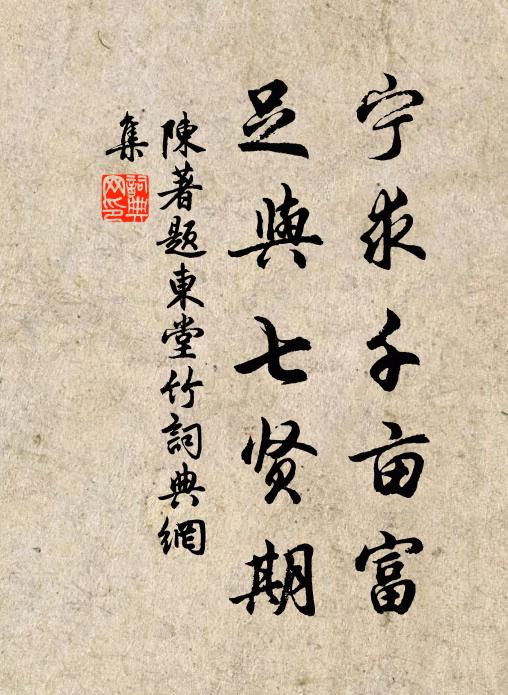 宁求千亩富
足與七贤期
陳著題東堂竹詞典網
集
詞典网印